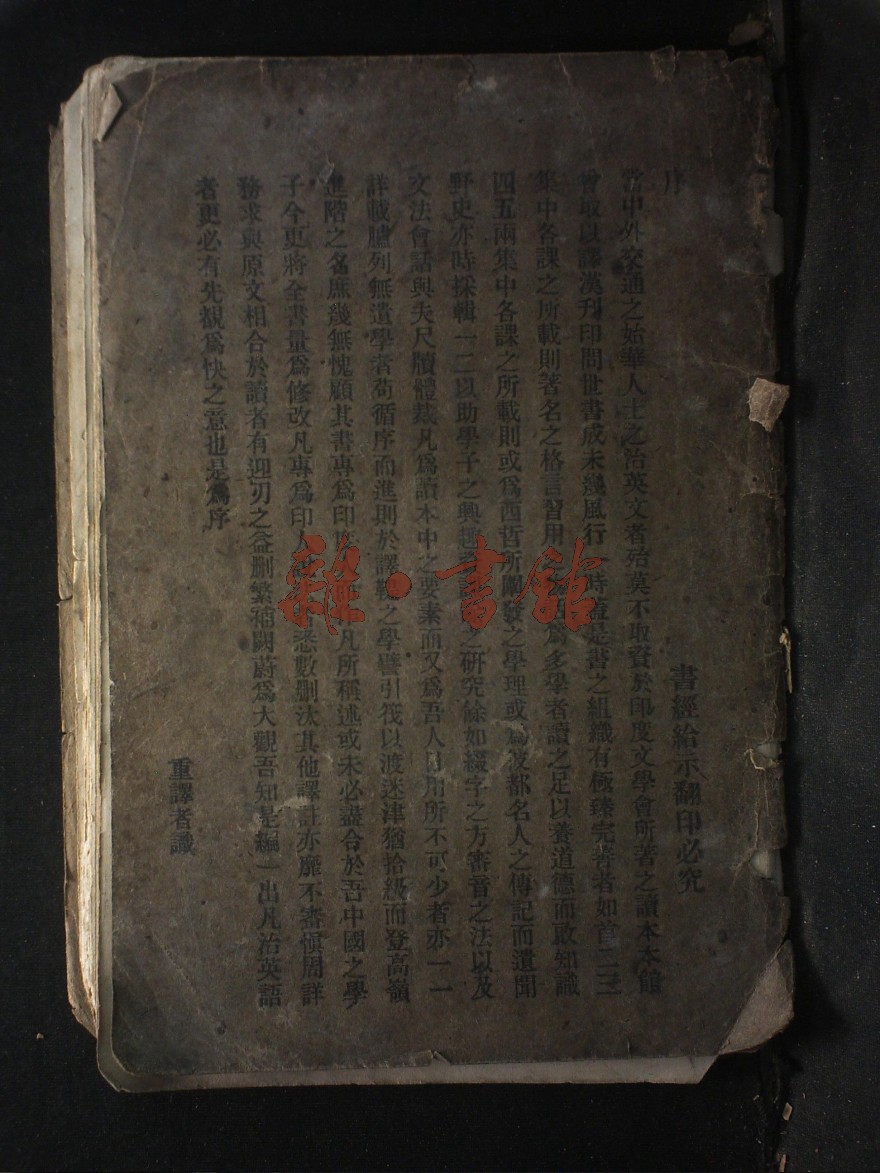 書經給示翻印必究
序
當中外交通之始華人士之治英文者殆莫不取資於印度文學會所著之讀本本館
曾取以譯漢刊印問世書成未幾風行一時蓋是書之組織有極臻完善者如首二三
集中各課之所載則著名之格言習用之為多學者讀之足以養道德而啟知識
四五兩集中各課之所載則或為西哲所闡發之學理或為彼都名人之傳記而遺聞
野史亦時採輯一二以助學子之興趣之研究餘如綴字之方審音之法以及
文法會話與夫尺牘體裁凡為讀本中之要素而又為吾人日用所不可少者亦一一
詳載臚列無遺學者苟循序而進則於譯之學譬引筏以渡迷津猶拾級而登高嶺
進階之名庶幾無愧顧其書專為印度凡所稱述或未必盡合於吾中國之學
子今更將全書量為修改凡專為印人悉數刪汰其他譯註亦靡不審慎周詳
務求與原文相合於讀者有迎刃之益刪繁補闕蔚為大觀吾知是編一出凡治英語
者更必有先覩為快之意也是為序
重譯者識
雜·書館